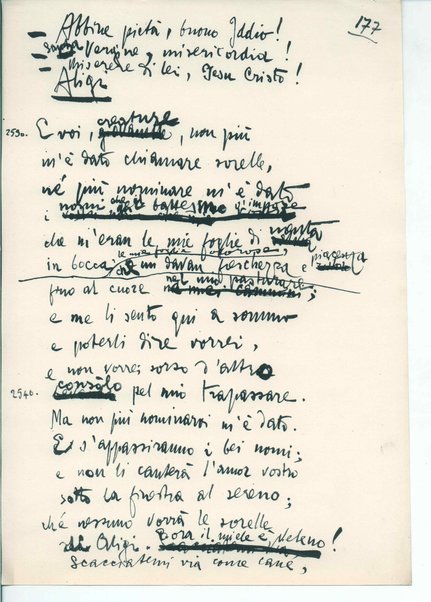 177
– Abbine pietà, buono Iddio!
– Santa Vergine, misericordia!
– Miserere di lei, Gesu Cristo!
Aligi
creature
2530. E voi, giovanette, non più
m'è dato chiamare sorelle,
né più nominare m'è dato
i nomi che battesmo v'impose
che m'eran le mie foglie di menta
le mie foglie odorose,
in bocca, che mi davan freschezza e piacenza
nel mio pasturare
fino al cuore ne' miei cammini;
e me li sento qui a sommo
e poterli dire vorrei,
e non vorrei sorso d'altro
consòlo
2540. pel mio trapassare.
Ma non più nominarvi m'è dato.
E s'appassiranno i bei nomi;
e non li canterà l'amor vostro
sotto la finestra al sereno;
ché nessuno vorrà le sorelle
di Aligi. Bora il miele è veleno!
Scacciatemi via come cane,